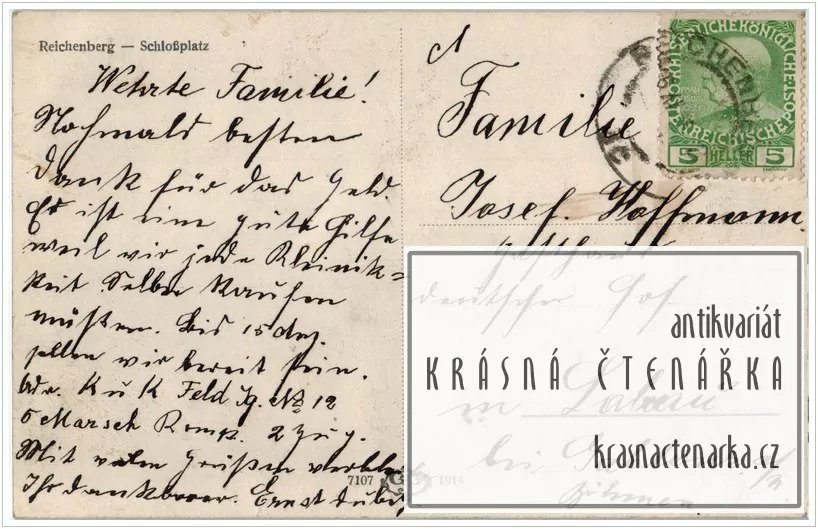 Reichenberg — Schloßplatz
Wehrte Familie!
Nochmals besten
Dank für das Geld.
Es ist eine gute Hilfe
weil wir jede Kleinig=
keit Selber kaufen
müßen. Bis 15 dez.
sollen wir bereit sein.
Adr. K u K Feld Jg. No 12
5 Marsch Komp. 2 Zug.
Mit vielen Grüßen verbl.
Ihr dankbarer Ernst
7107
1914
Familie
Josef Hoffmann
Gasthaus
deutscher Hof
in
bei
Böhmen
KAISERLICHE KÖNIGLICHE ÖSTERREICHISCHE POST
5 HELLER 5
REICHENBERG
antikvariát
KRÁSNÁ ČTENÁŘKA
krasnactenarka.cz